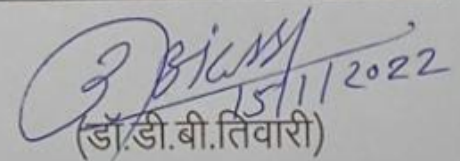 15/1/2022
(डॉ.डी.बी.तिवारी)